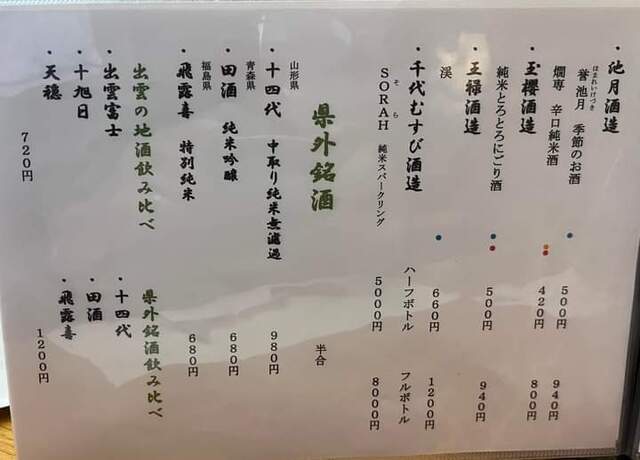 ・池月酒造
ほまれいけづき
誉池月 季節のお酒 500円 940円
燗専 辛口純米酒 420円 800円
・玉櫻酒造
純米とろとろにごり酒 500円 940円
・王祿酒造
渓 660円 1200円
・千代むすび酒造 ハーフボトル フルボトル
そら
SORAH 純米スパークリング 5000円 8000円
県外銘酒 半合
山形県
・十四代 中取り純米無濾過 980円
青森県
・田酒 純米吟醸 680円
福島県
・飛露喜 特別純米 680円
出雲の地酒飲み比べ
・出雲富士
・十旭日
・天穏
720円
県外銘酒飲み比べ
・十四代
・田酒
・飛露喜
1200円